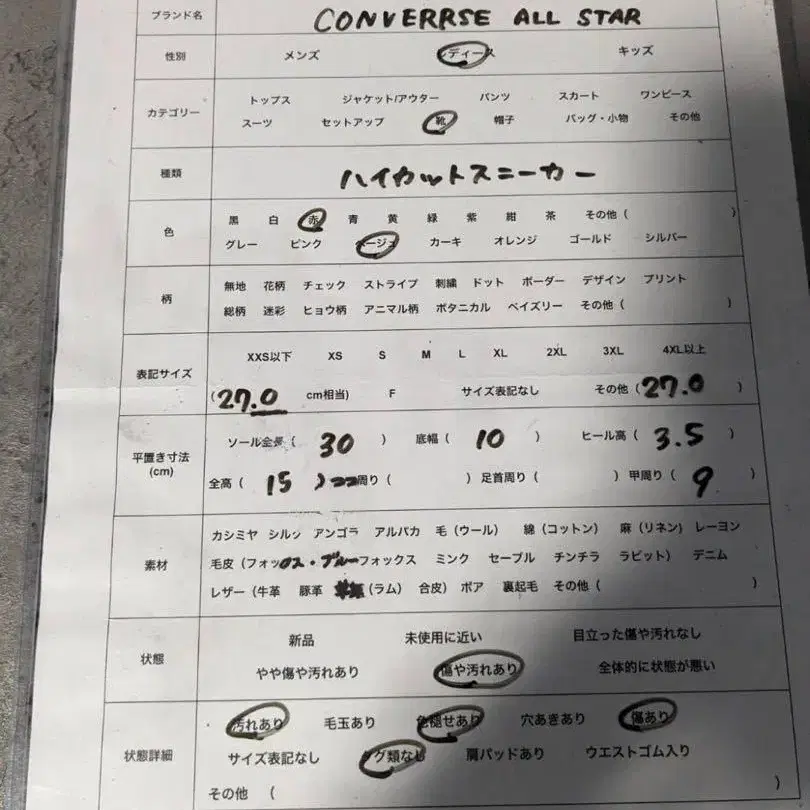 ブランド名 CONVERRSE ALL STAR
性別 メンズ レディース キッズ
カテゴリー
トップス ジャケット/アウター パンツ スカート ワンピース
スーツ セットアップ 靴 帽子 バッグ・小物 その他
種類 ハイカットスニーカー
色
黒 白 赤 青 黄 緑 紫 紺 茶 その他( )
グレー ピンク ベージュ カーキ オレンジ ゴールド シルバー
柄
無地 花柄 チェック ストライプ 刺繍 ドット ボーダー デザイン プリント
総柄 迷彩 ヒョウ柄 アニマル柄 ボタニカル ペイズリー その他( )
表記サイズ
XXS以下 XS S M L XL 2XL 3XL 4XL以上
(27.0 cm相当) F サイズ表記なし その他(27.0 )
平置き寸法
(cm)
ソール全長( 30 ) 底幅( 10 ) ヒール高( 3.5 )
全高( 15 ) 周り( ) 足首周り( ) 甲周り( 9 )
素材
カシミヤ シルク アンゴラ アルパカ 毛(ウール) 綿(コットン) 麻(リネン) レーヨン
毛皮(フォックス・ブルーフォックス ミンク セーブル チンチラ ラビット) デニム
レザー(牛革 豚革 (ラム) 合皮) ボア 裏起毛 その他( )
状態
新品 未使用に近い 目立った傷や汚れなし
やや傷や汚れあり 傷や汚れあり 全体的に状態が悪い
状態詳細
汚れあり 毛玉あり 色褪せあり 穴あきあり 傷あり
サイズ表記なし タグ類なし 肩パッドあり ウエストゴム入り
その他 ( )